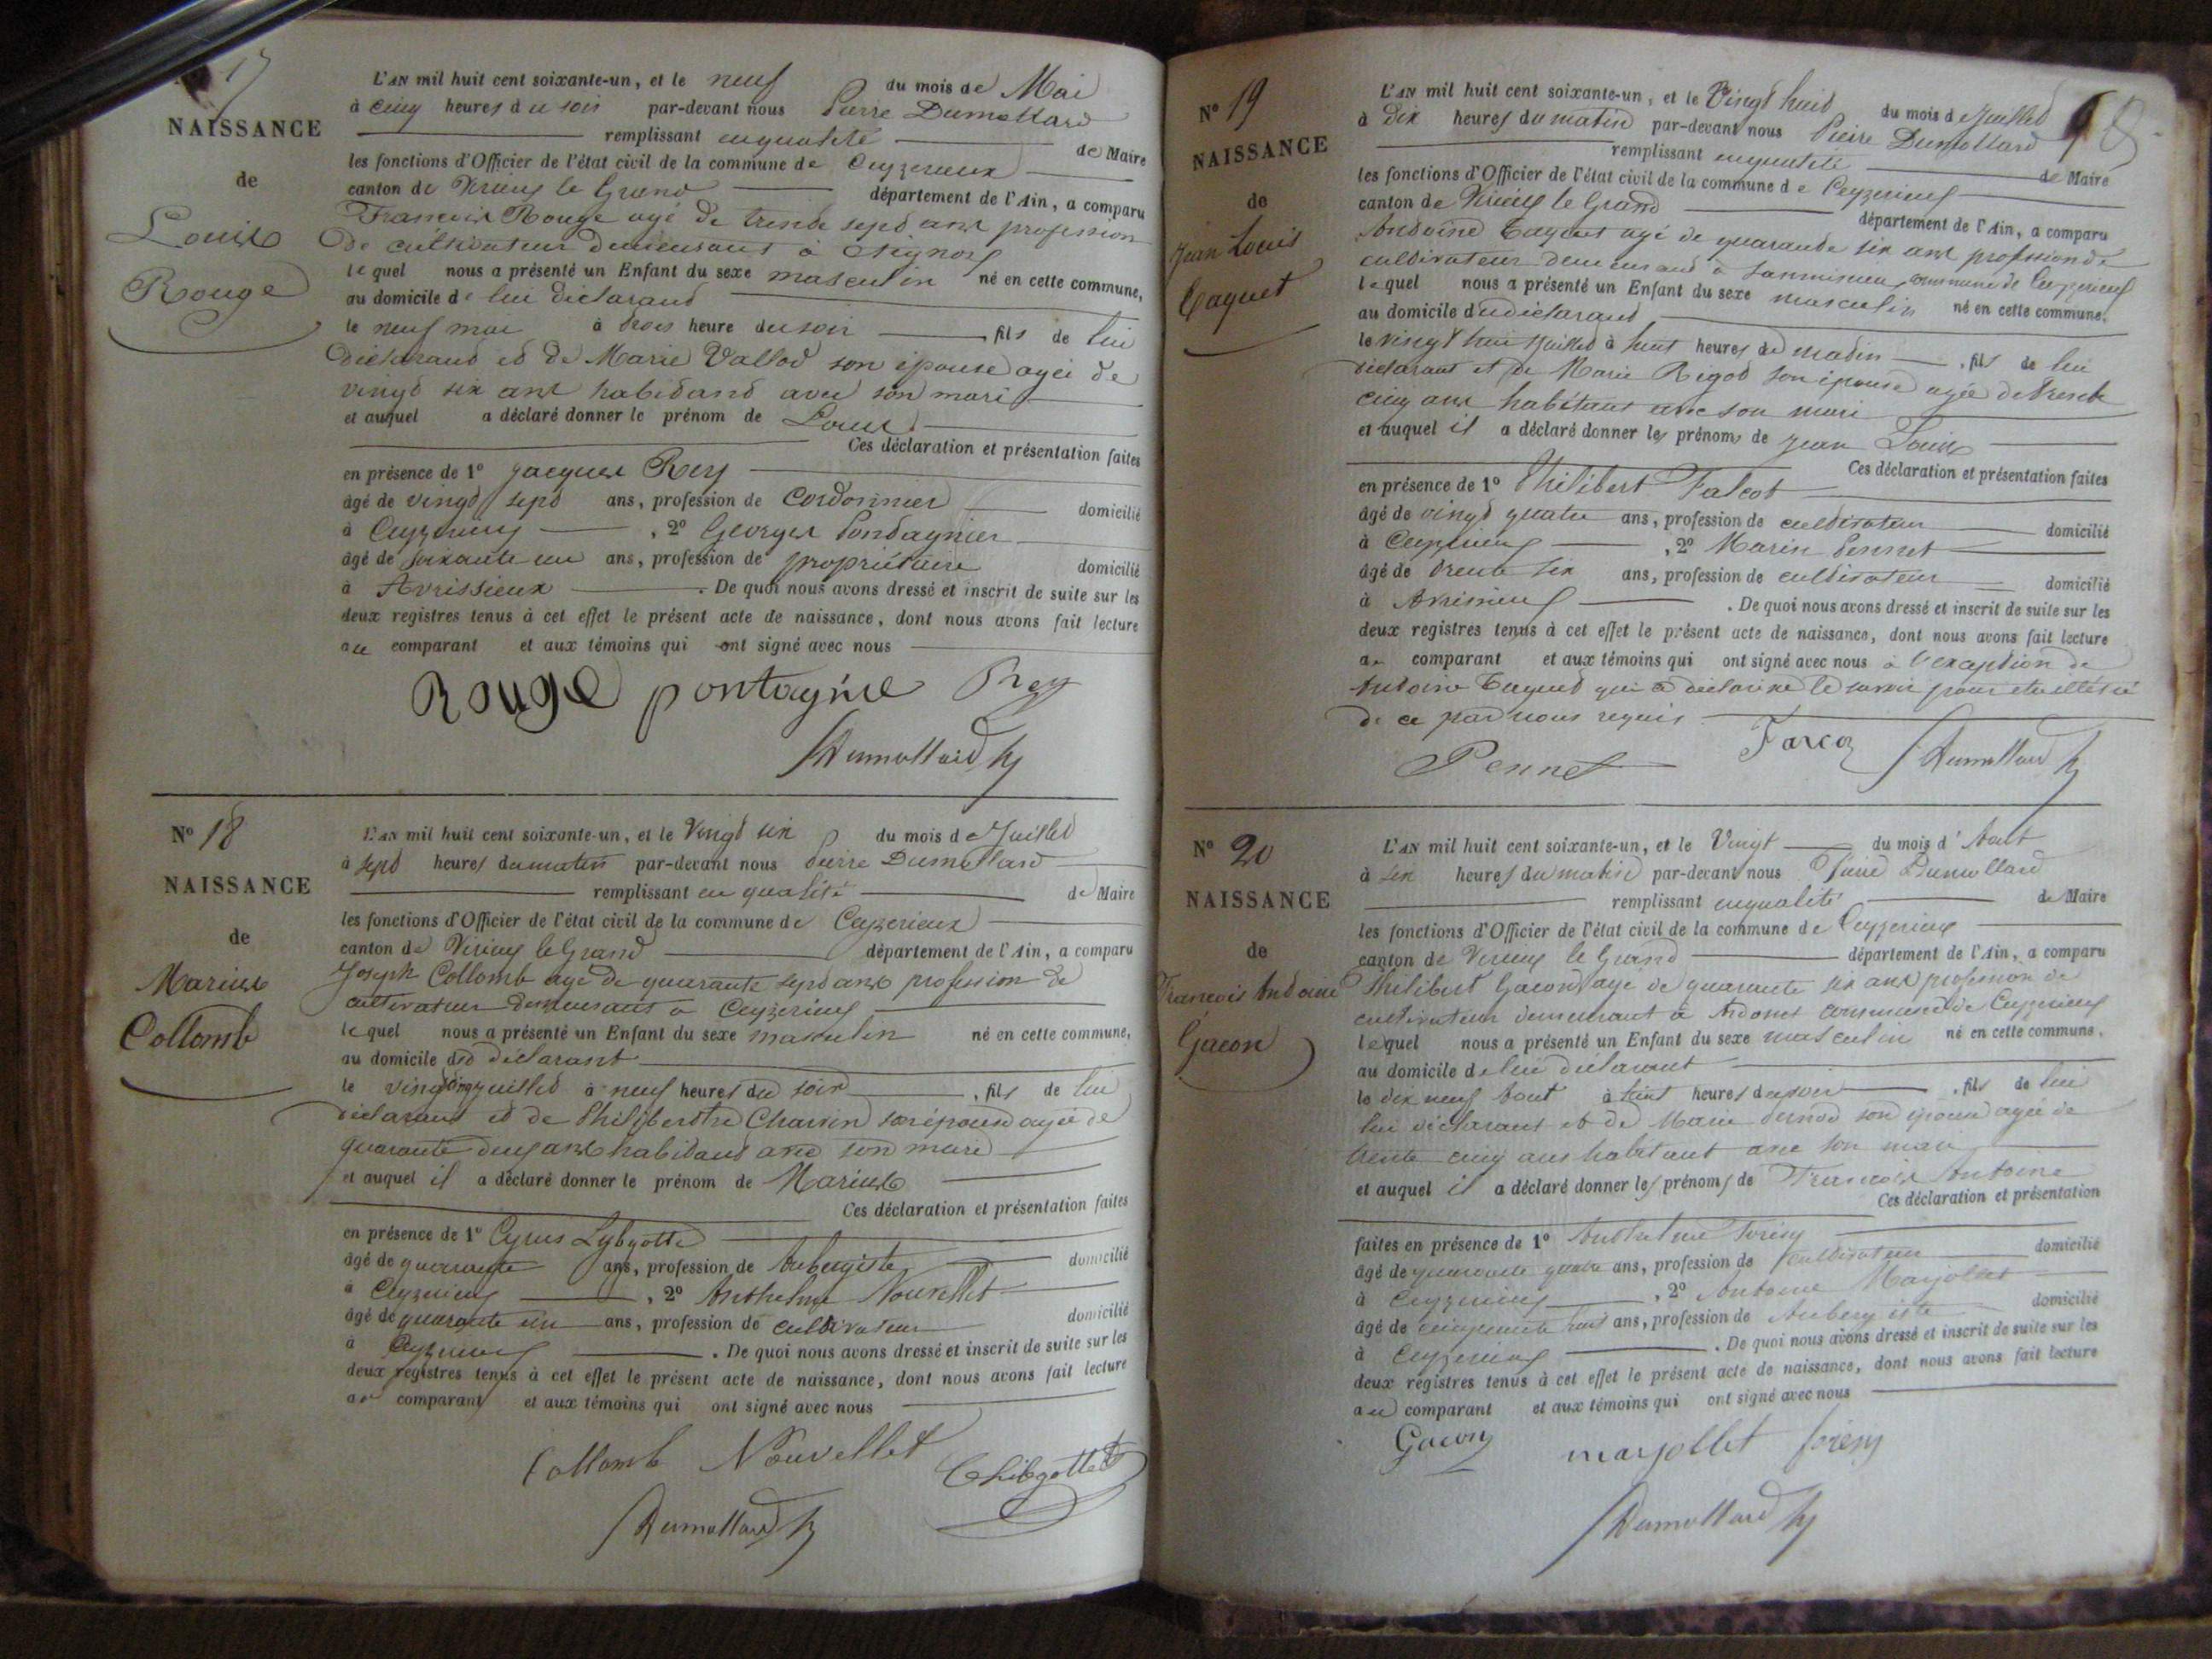 17
NAISSANCE
de
Louis
Rouge
L'AN mil huit cent soixante-un, et le neuf du mois de Mai
à cinq heures du soir par-devant nous Pierre Dumollard
remplissant en qualité de Maire
les fonctions d'Officier de l'état civil de la commune de Ceyzerieux
canton de Virieu le Grand département de l'Ain, a comparu
Francois Rouge agé de trente sept ans profession
de cultivateur demeurant à
lequel nous a présenté un Enfant du sexe masculin né en cette commune,
au domicile de lui déclarant
le neuf mai à trois heure du soir fils de lui
déclarant et de Marie Vallod son épouse agée de
vingt six ans habitand avec son mari
et auquel a déclaré donner le prénom de Louis
Ces déclaration et présentation faites
en présence de 1º Jacques Rey
âgé de vingt sept ans, profession de Cordonnier domicilié
à Ceyzerieu , 2º Georges Pontagnier
âgé de soixante un ans, profession de propriétaire domicilié
à Avrissieux . De quoi nous avons dressé et inscrit de suite sur les
deux registres tenus à cet effet le présent acte de naissance, dont nous avons fait lecture
au comparant et aux témoins qui ont signé avec nous
Rouge pontagnie Rey
Dumollard
Nº 18
NAISSANCE
de
Marius
Collomb
L'AN mil huit cent soixante-un, et le Vingt six du mois de Juillet
à sept heures du matin par-devant nous Pierre Dumollard
remplissant en qualité de Maire
les fonctions d'Officier de l'état civil de la commune de Ceyzerieux
canton de Virieu le Grand département de l'Ain, a comparu
Joseph Collomb agé de quarante sept ans profession de
cultivateur demeurant à Ceyzerieu
lequel nous a présenté un Enfant du sexe masculin né en cette commune,
au domicile du déclarant
le vingt cinq juillet à neuf heures du soir , fils de lui
déclarant et de Philiberthe Charvin son épouse agée de
quarante deux ans habitant avec son mari
et auquel il a déclaré donner le prénom de Marius
Ces déclaration et présentation faites
en présence de 1º Cyrus
âgé de quarante ans, profession de Aubergiste domicilié
à Ceyzerieu , 2º Anthelme Nouvellet
âgé de quarante un ans, profession de cultivateur domicilié
à Ceyzerieu . De quoi nous avons dressé et inscrit de suite sur les
deux registres tenus à cet effet le présent acte de naissance, dont nous avons fait lecture
au comparant et aux témoins qui ont signé avec nous
Collomb Nouvellet
Dumollard
Nº 19
NAISSANCE
de
Jean Louis
Caquet
L'AN mil huit cent soixante-un, et le Vingt huit du mois de Juillet
à Dix heures du matin par-devant nous Pierre Dumollard
remplissant en qualité de Maire
les fonctions d'Officier de l'état civil de la commune de Ceyzerieu
canton de Virieu le Grand département de l'Ain, a comparu
Antoine Caquet agé de quarante six ans profession de
cultivateur demeurant à commune de Ceyzerieu
lequel nous a présenté un Enfant du sexe masculin né en cette commune,
au domicile du déclarant
le vingt huit juillet à huit heures du matin , fils de lui
déclarant et de Marie Rigod son épouse agée de trente
cinq ans habitant avec son mari
et auquel il a déclaré donner les prénoms de Jean Louis
Ces déclaration et présentation faites
en présence de 1º Philibert Falcot
âgé de vingt quatre ans, profession de cultivateur domicilié
à Ceyzerieu , 2º Marin Pennet
âgé de trente six ans, profession de cultivateur domicilié
à . De quoi nous avons dressé et inscrit de suite sur les
deux registres tenus à cet effet le présent acte de naissance, dont nous avons fait lecture
au comparant et aux témoins qui ont signé avec nous à l'exception de
Antoine Caquet qui a déclaré ne le savoir pour
de ce par nous requis
Pennet Dumollard
Nº 20
NAISSANCE
de
Francois Antoine
Gacon
L'AN mil huit cent soixante-un, et le Vingt du mois d'Aout
à six heures du matin par-devant nous Pierre Dumollard
remplissant en qualité de Maire
les fonctions d'Officier de l'état civil de la commune de Ceyzerieu
canton de Virieu le Grand département de l'Ain, a comparu
Philibert Gacon agé de quarante six ans profession de
cultivateur demeurant à Ardosset commune de Ceyzerieu
lequel nous a présenté un Enfant du sexe masculin né en cette commune,
au domicile de lui déclarant
le dix neuf Aout à huit heures du soir , fils de lui
lui déclarant et de Marie son épouse agée de
trente cinq ans habitant avec son mari
et auquel il a déclaré donner les prénoms de Francois Antoine
Ces déclaration et présentation
faites en présence de 1º Anthelme
âgé de quarante quatre ans, profession de cultivateur domicilié
à Ceyzerieu , 2º Antoine Marjollet
âgé de cinquante huit ans, profession de Aubergiste domicilié
à Ceyzerieu . De quoi nous avons dressé et inscrit de suite sur les
deux registres tenus à cet effet le présent acte de naissance, dont nous avons fait lecture
au comparant et aux témoins qui ont signé avec nous
Gacon marjollet
Dumollard